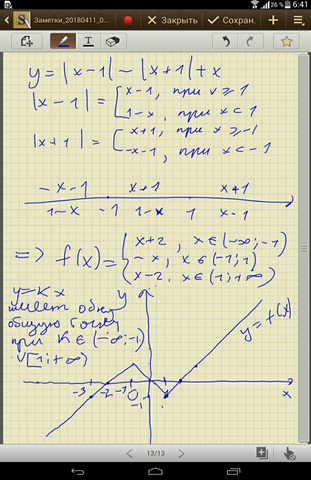 26% 6:41
Заметки_20180411_0...
Закрыть
Сохран.
y = |x-1| - |x+1| + x
|x-1| = [ x-1, при x ≥ 1
1-x, при x < 1
|x+1| = [ x+1, при x ≥ -1
-x-1, при x < -1
-x-1 x+1 x+1
1-x -1 1-x 1 x-1
=> f(x) = { x+2, x ∈ (-∞; -1)
-x, x ∈ (-1; 1)
x-2, x ∈ (1; +∞)
y = kx
имеет одну
общую точку
при k ∈ (-∞; -1)
∪ [1; +∞)
y
y = f(x)
-3 -2 -1 0 x
-1
13/13